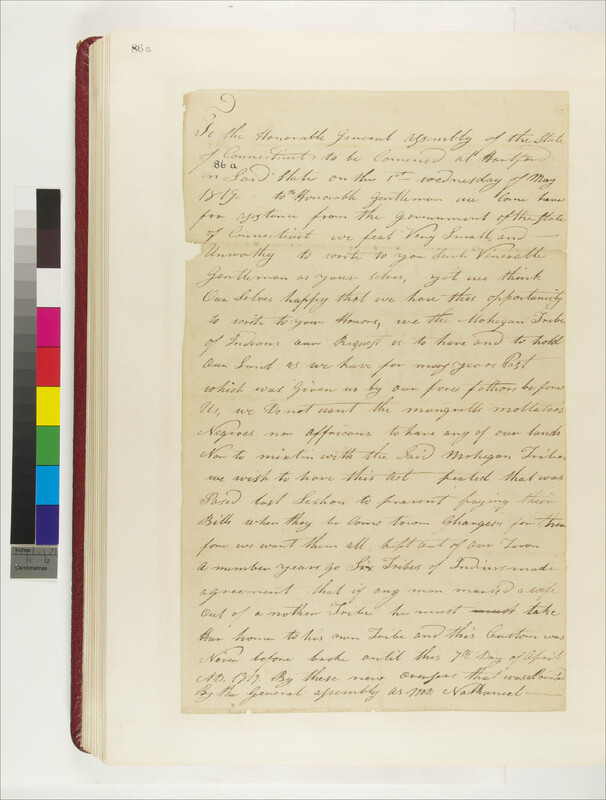 86 a
2
To the Honorable General Assembly of the State
of Connecticut to be Convened at Hartford
86 a
in Said State on the 1st Wednesday of May
1819. to the Honorable Gentlemen we Come here
for asistance from the government of the State
of Connecticut we feal Very Small and
Unworthy to write to you Such Vinerable
Gentleman as your selves, yet we think
Our Selves happy that we have this oppertunity
to write to your Honors, we the Mohegan Tribe
of Indians our Request is to have and to hold
Our Land as we have for many years Past
which was Given us by our fore fathers before
Us, we Do not want the mungrells mollatoos
Negroes nor Affricans to have any of our lands
Nor to mixt in with the Said Mohegan Tribe
we wish to have this act that was
Pasd last Seshon to prevent paying their
Bills when they be come town Chargers for there
fore we want them all kept out of our Town
a number years go Six Tribes of Indians made
agreement that if any man married a wife
Out of a nother Tribe he must must take
Har home to his own Tribe and this Custom was
Never before broke until this 7th Day of April
AD. 1819 By these new Overseers that was
By the General assembly as Mr Nathaniel
Inches
Centimetres